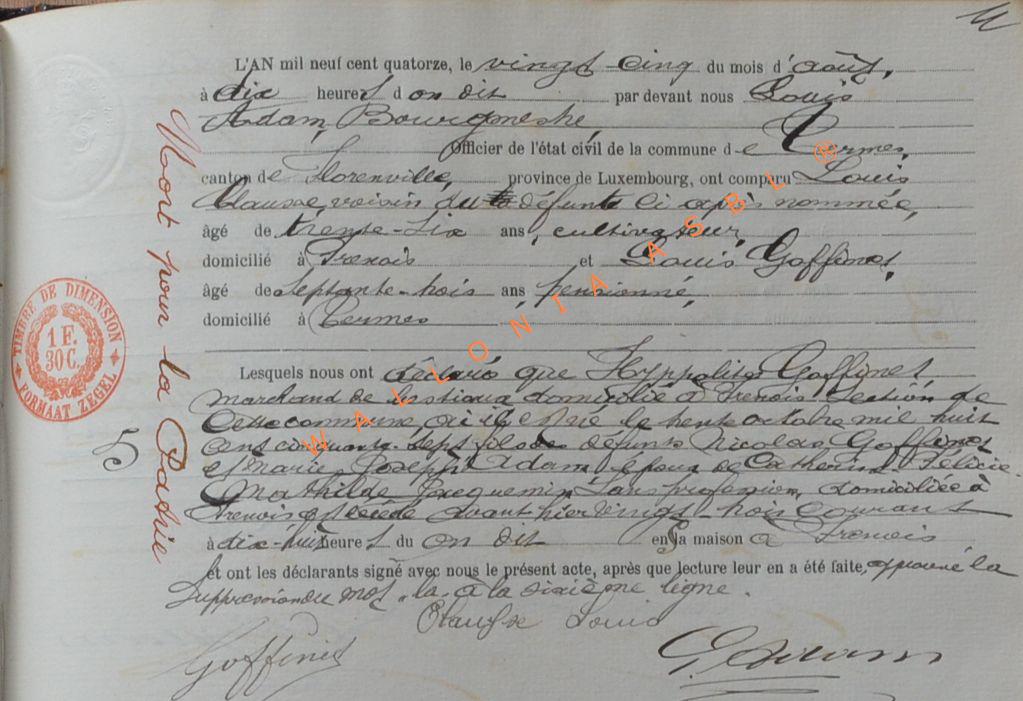 L'AN mil neuf cent quatorze, le vingt cinq du mois d'août,
à dix heures d on dit par devant nous Louis
Adam, Bourgmestre
Officier de l'état civil de la commune de Termes,
canton de Florenville, province de Luxembourg, ont comparu Louis
Clausse, voisin du défunt ci après nommée,
âgé de trente-six ans, cultivateur,
domicilié à Frenois et Louis Goffinet,
âgé de septante-trois ans, pensionné,
domicilié à Termes
Lesquels nous ont déclaré que Hyppolite Goffinet
marchand de bestiaux domicilié à Frenois section de
cette commune, où il est né le trente octobre mil huit
cent cinquante-sept, fils de défunts Nicolas Goffinet
et Marie Joseph Adam, époux de Catherine Félicie
Mathilde Jacquemin, sans profession, domiciliée à
Frenois est décédé avant hier vingt-trois courant
à dix-huit heures du on dit en sa maison à Frenois
et ont les déclarants signé avec nous le présent acte, après que lecture leur en a été faite, approuvé la
suppression du mot "la" à la sixième ligne.
Clausse Louis
Goffinet
Mort pour la Patrie
5
TIMBRE DE DIMENSION
1 F.
30 C.
FORMAAT ZEGEL
WALLONIA ASBL ®